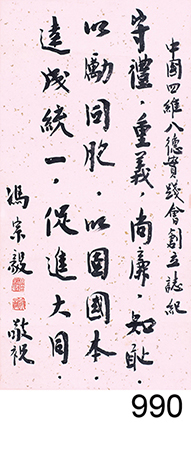 中國四維八德實踐會創立誌紀
守禮·重義·尚廉·知恥·
以勵同胞·以固國本·
達成統一·促進大同·
馮宗毅 敬祝
990